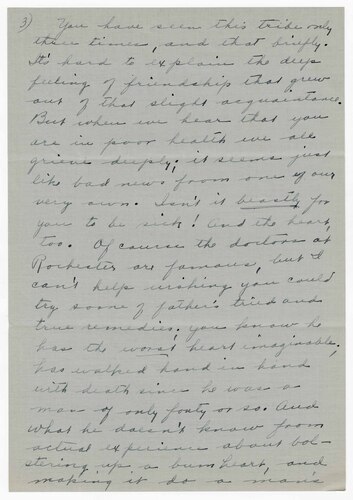 3) You have seen this tribe only
three times, and that briefly.
It's hard to explain the deep
feeling of friendship that grew
out of that slight acquaintance.
But when we hear that you
are in poor health we all
grieve deeply; it seems just
like bad news from one of our
very own. Isn't it beastly for
you to be sick! And the heart,
too. Of course the doctors at
Rochester are famous, but I
can't help wishing you could
try some of father's tried and
true remedies. You know he
has the worst heart imaginable,
has walked hand in hand
with death since he was a
man of only forty or so. And
what he doesn't know from
actual experience about bol-
stering up a bum heart, and
making it do a man's